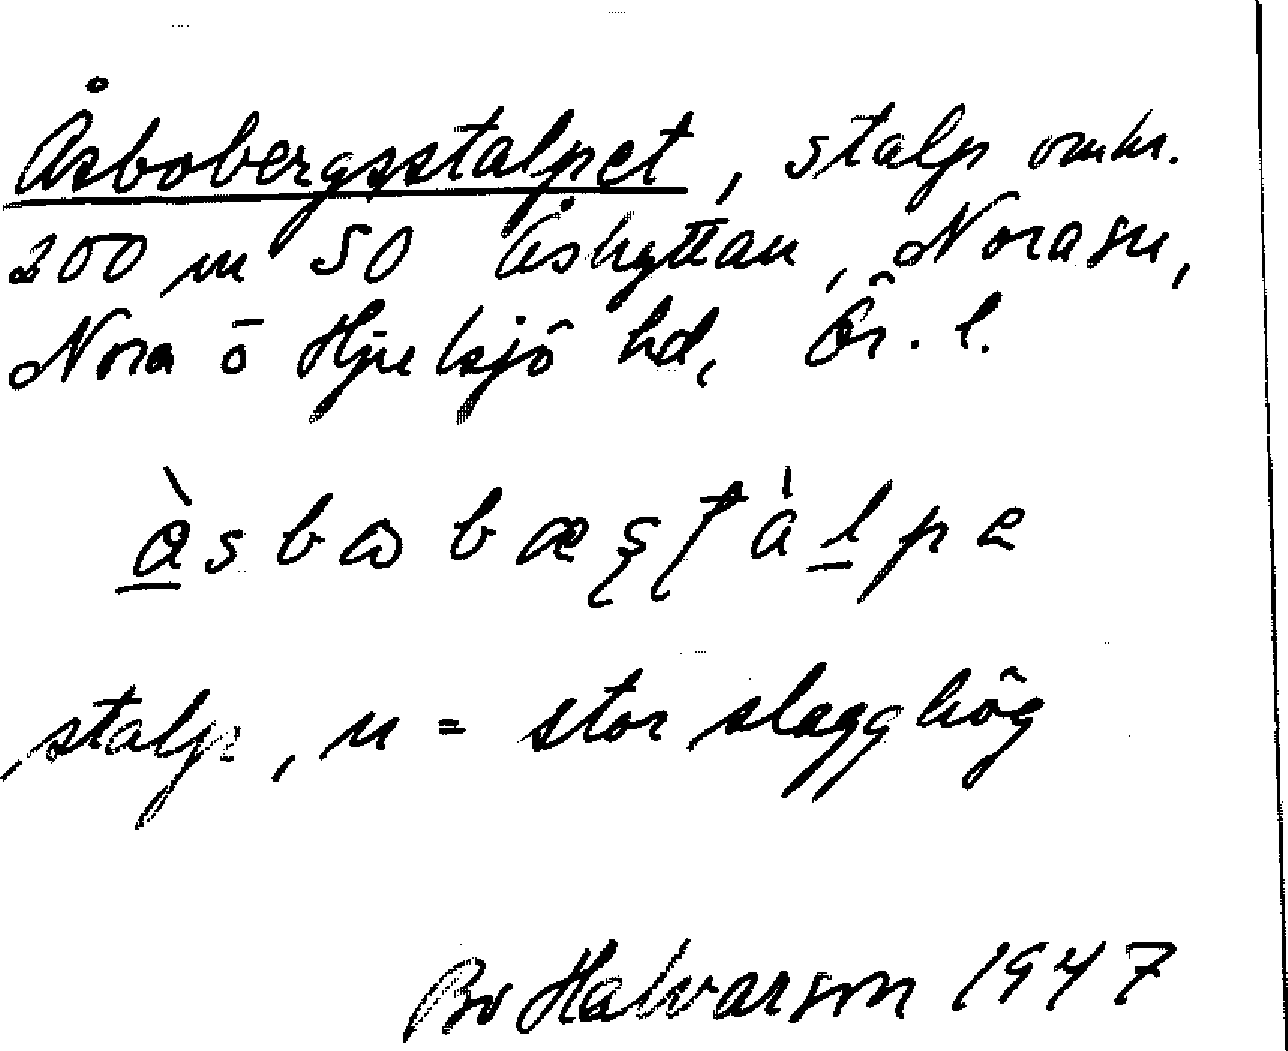 Åsbobergsstalpet, stalp omkr.
200 m SO Åshyttan, Nora sn,
Nora o Hjulsjö hd, Ör. l.
stalp, n = stor slagghög
Bo Halvarson 1947